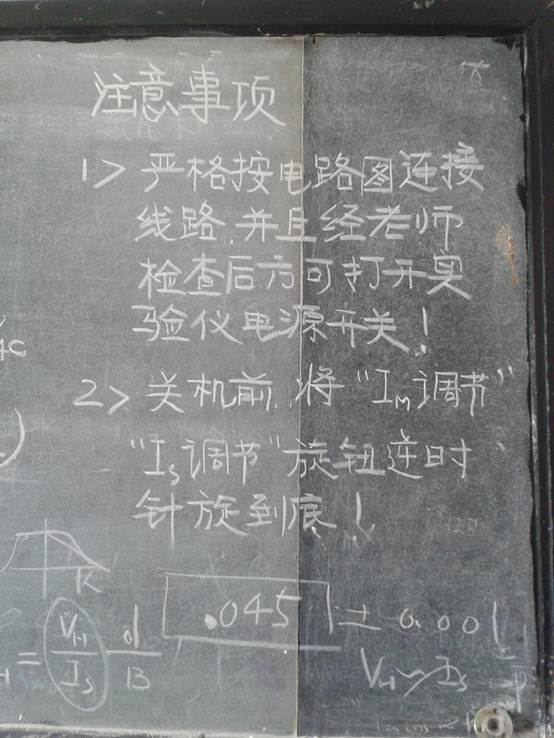 注意事项
1> 严格按电路图连接
线路,并且经老师
检查后方可打开实
验仪电源开关!
2> 关机前,将"IM调节"
"Is调节"旋钮逆时
针旋到底!
K
.045 ± 0.001
= VH/Is d/B
VH~Is